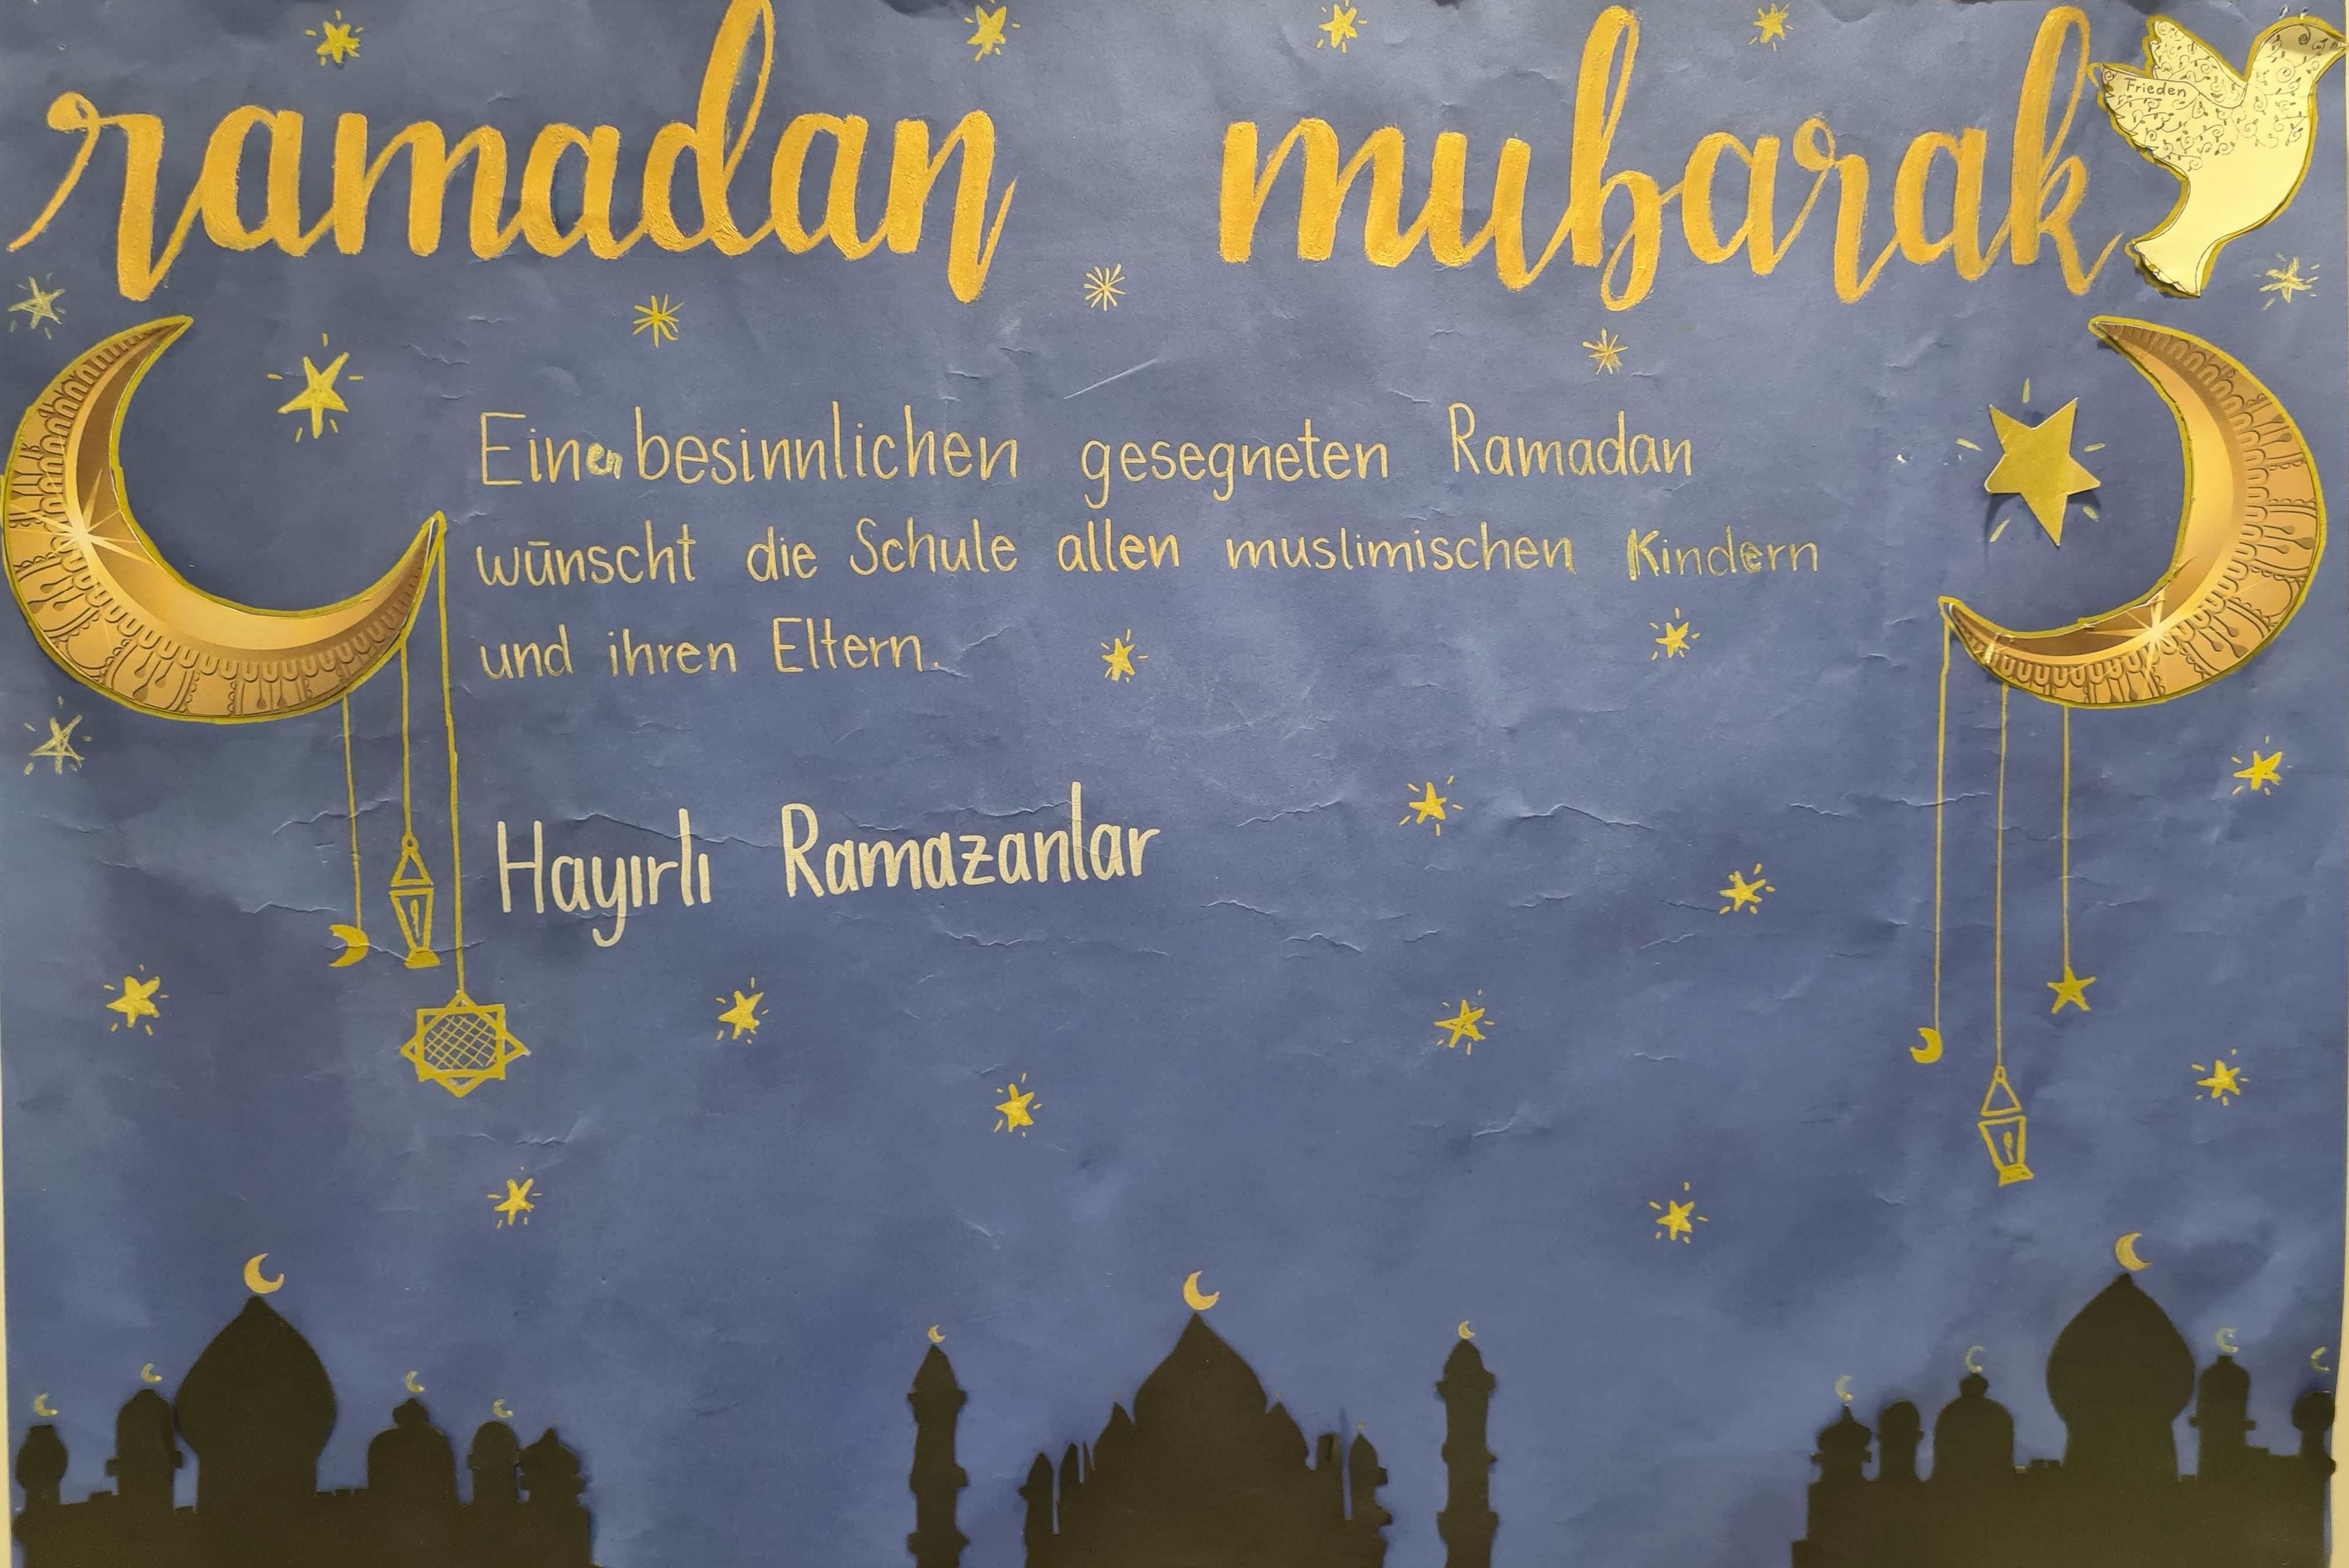 ramadan mubarak
Frieden
Einen besinnlichen gesegneten Ramadan
wünscht die Schule allen muslimischen Kindern
und ihren Eltern.
Hayırlı Ramazanlar